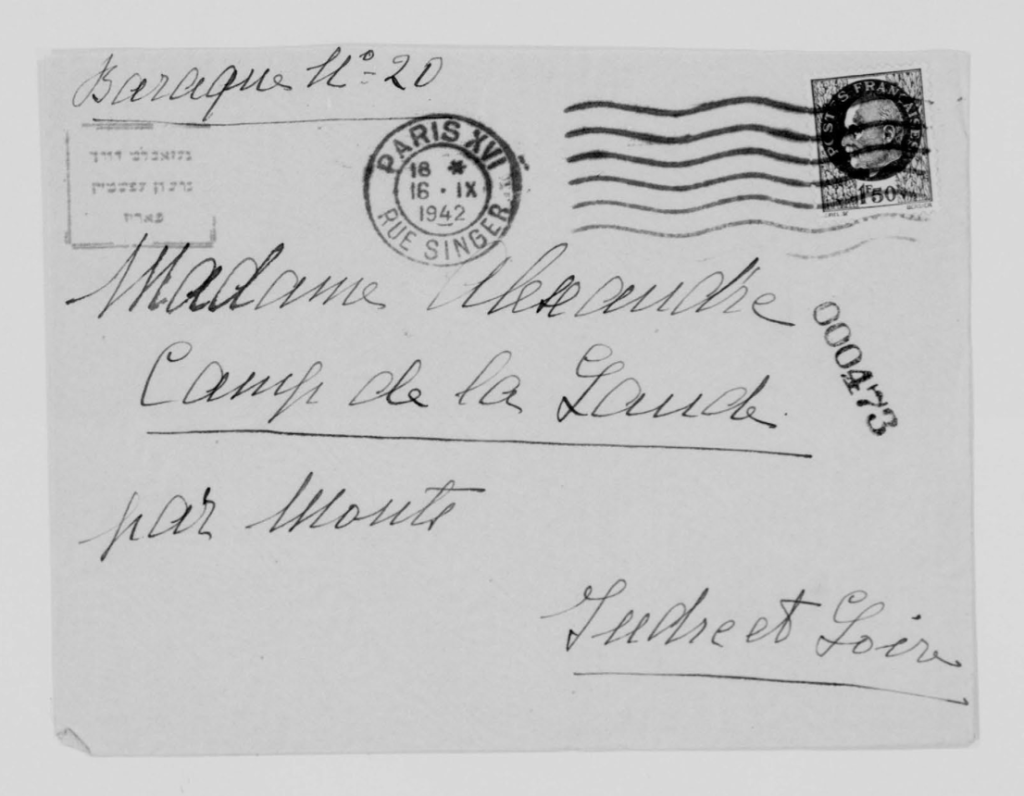 Baraque No 20
געזאמלט דורך
גרשון עפשטיין
פאריז
PARIS XVI
18 *
16 · IX
1942
RUE SINGER
POSTES FRANÇAISES
1F50
Madame Alexandre
000473
Camp de la Lande
par Monts
Indre et Loire